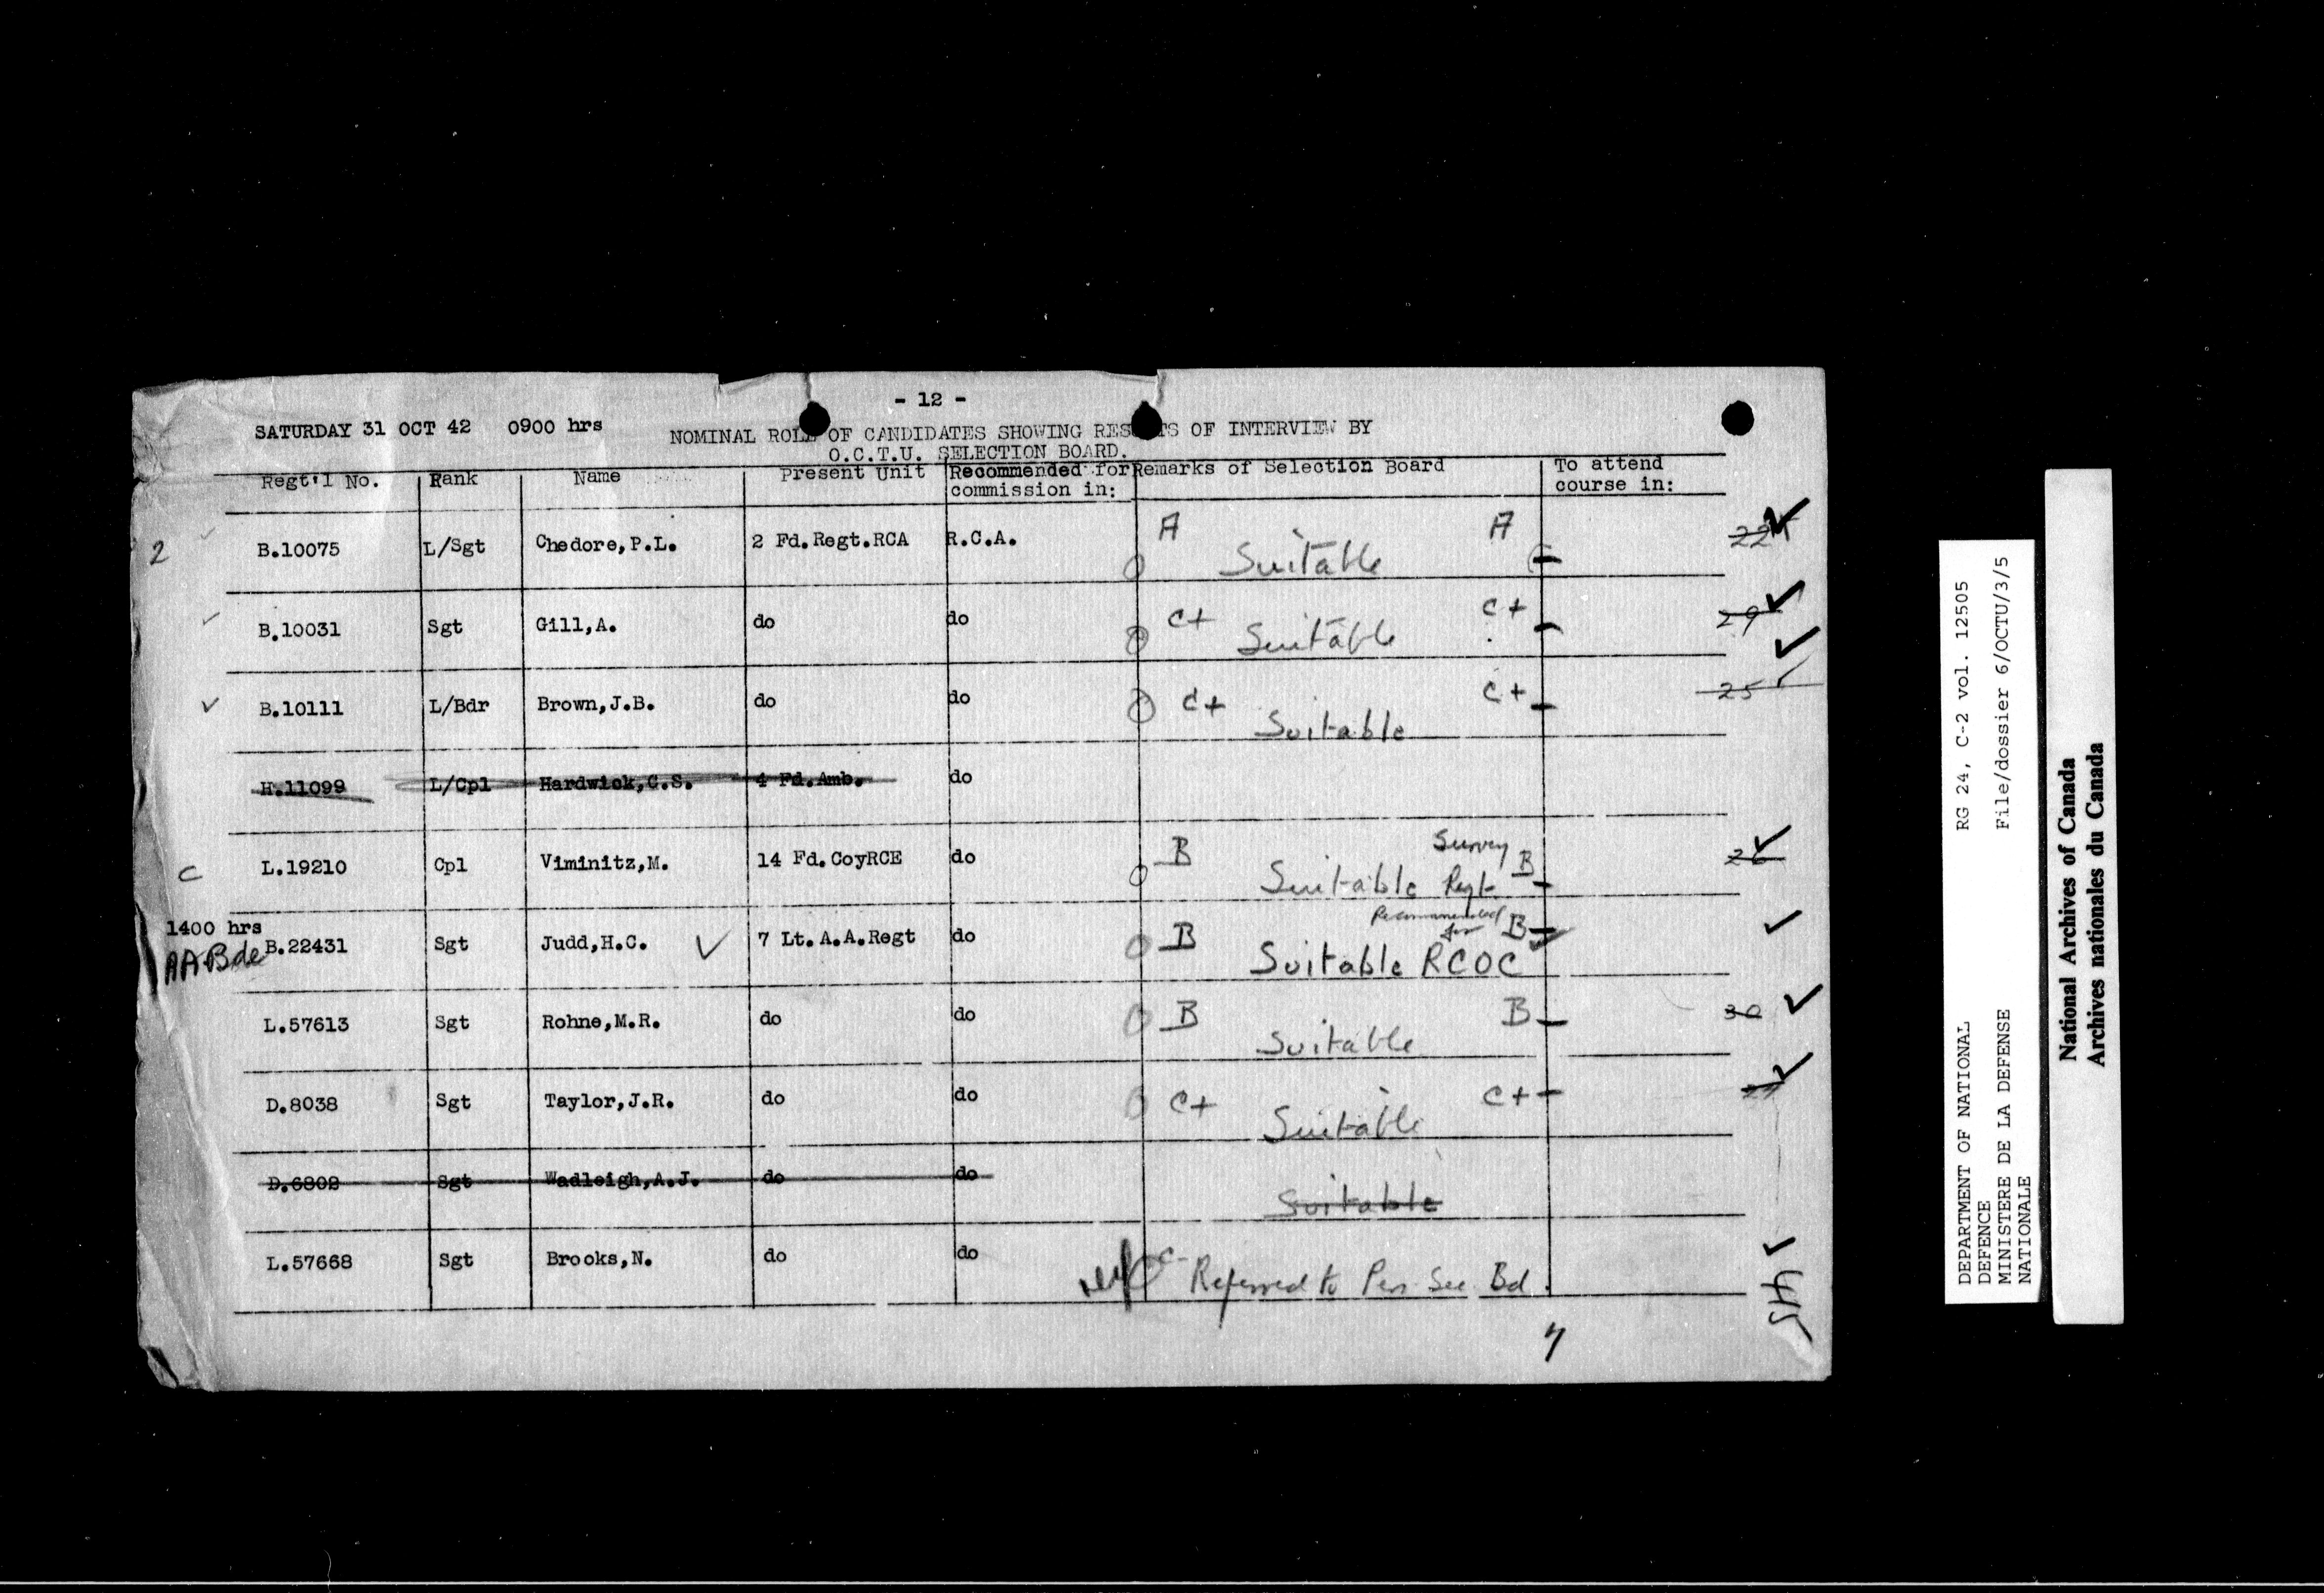 - 12 -
SATURDAY 31 OCT 42 0900 hrs
NOMINAL ROLL OF CANDIDATES SHOWING RES TS OF INTERVIEW BY
O.C.T.U. SELECTION BOARD.
Regt'l No. Rank Name Present Unit Recommended for commission in: Remarks of Selection Board To attend course in:
2 B.10075 L/Sgt Chedore,P.L. 2 Fd.Regt.RCA R.C.A. A Suitable A 22
B.10031 Sgt Gill,A. do do C+ Suitable C+ 29
B.10111 L/Bdr Brown,J.B. do do C+ Suitable C+ 25
H.11099 L/Cpl Hardwick,C.S. 4 Fd.Amb. do
C L.19210 Cpl Viminitz,M. 14 Fd.CoyRCE do B Suitable Survey Regt B 26
1400 hrs
AA Bde B.22431 Sgt Judd,H.C. 7 Lt.A.A.Regt do B Suitable Recommended for RCOC B
L.57613 Sgt Rohne,M.R. do do B Suitable B 30
D.8038 Sgt Taylor,J.R. do do C+ Suitable C+
D.6802 Sgt Wadleigh,A.J. do do Suitable
L.57668 Sgt Brooks,N. do do C- Referred to Pers Sec Bd.
7
DEPARTMENT OF NATIONAL DEFENCE
MINISTERE DE LA DEFENSE NATIONALE
RG 24, C-2 vol. 12505
File/dossier 6/OCTU/3/5
National Archives of Canada
Archives nationales du Canada